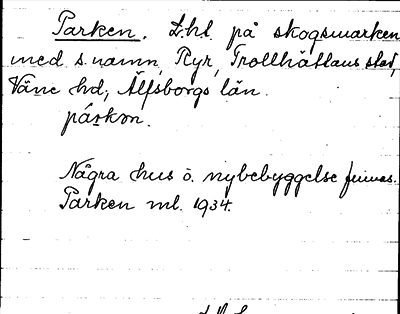 Parken. D.hl på skogsmarken
med s. namn, Ryr, Trollhättans stad,
Väne hd, Älfsborgs län.
párkən.
Några hus o. nybebyggelse finnas.
Parken ml. 1934.